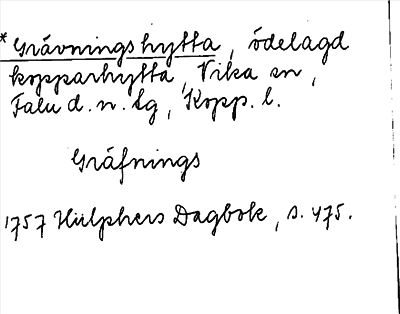 *Grävningshytta, ödelagd
kopparhytta, Vika sn,
Falu d. n. tg, Kopp. l.
Gräfnings
1757 Hülphers Dagbok, s. 475.